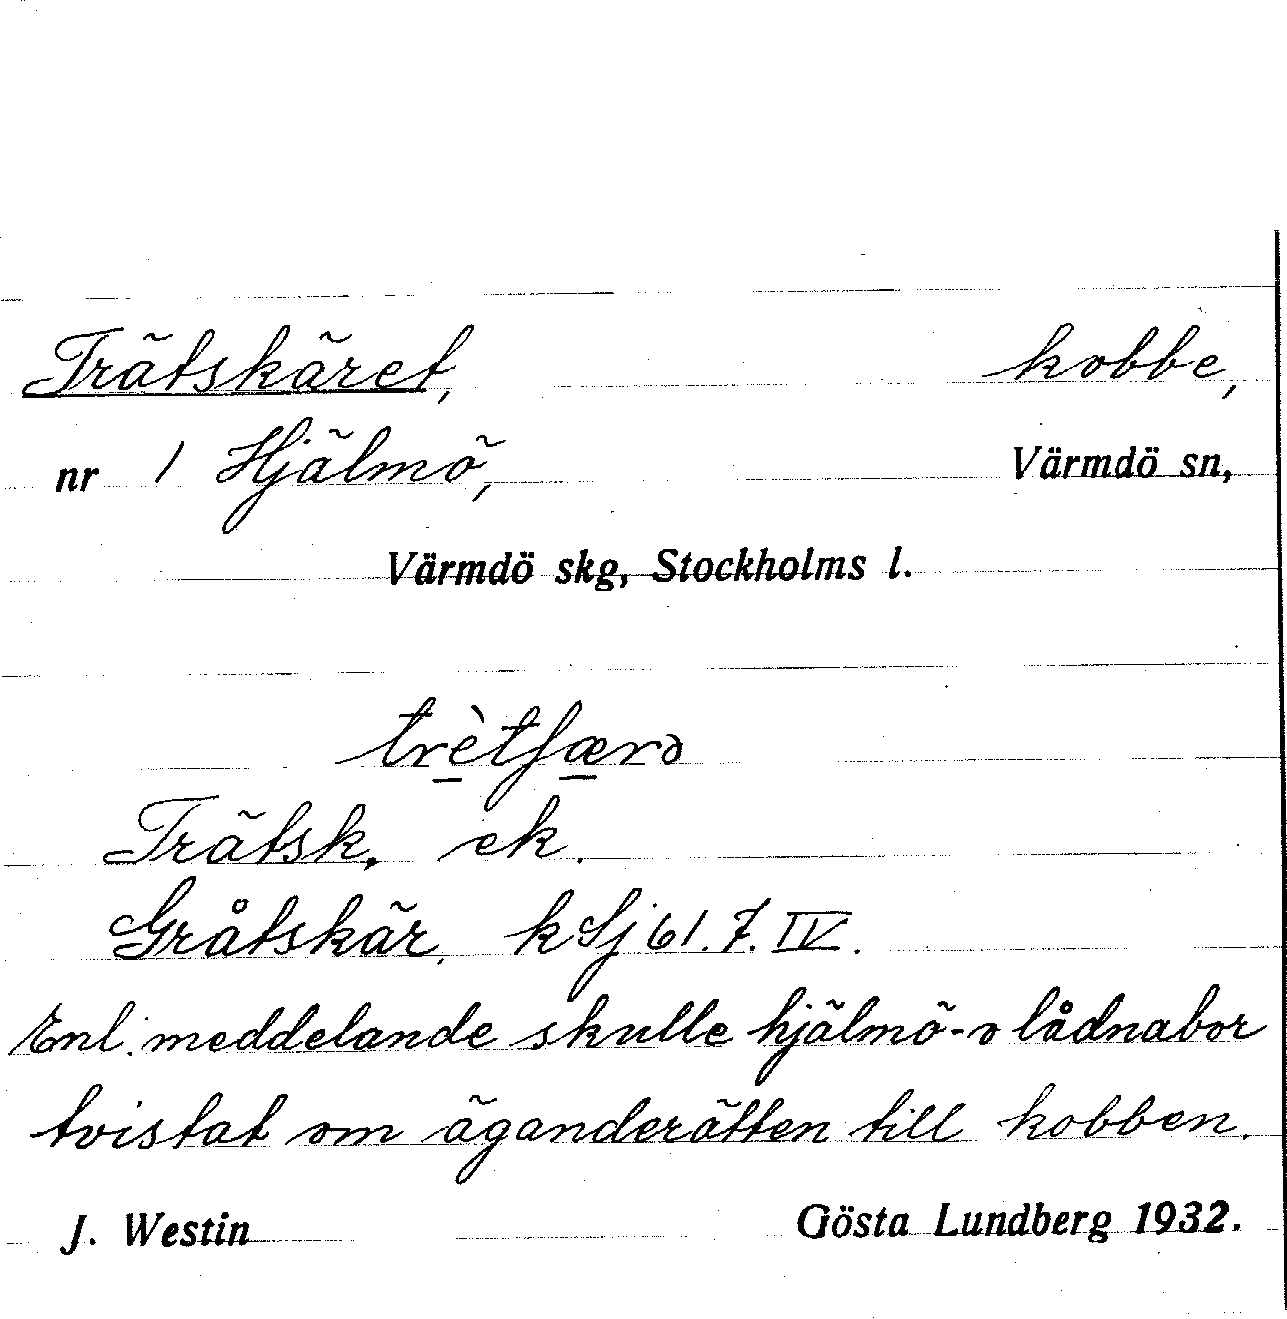 Trätskäret, kobbe,
nr 1 Hjälmö, Värmdö sn,
Värmdö skg, Stockholms l.
trètʃærə
Trätsk. ek.
Gråtskär. k Sj 61. 7. IV.
Enl. meddelande skulle hjälmö- o lådnabor
tvistat om äganderätten till kobben.
J. Westin Gösta Lundberg 1932.